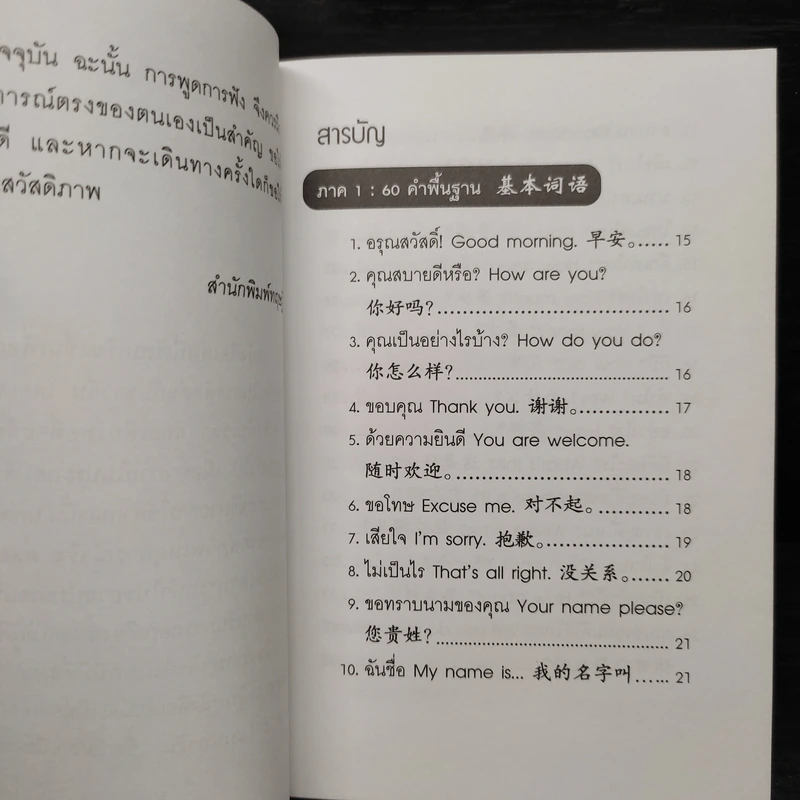 จจุบัน ฉะนั้น การพูดการฟัง
ของตนเองเป็นสำคัญ
ดี และหากจะเดินทางครั้งใดก็
สวัสดิภาพ
สำนักพิมพ์
สารบัญ
ภาค 1 : 60 คำพื้นฐาน 基本词语
1. อรุณสวัสดิ์! Good morning. 早安。...... 15
2. คุณสบายดีหรือ? How are you?
你好吗?................................ 16
3. คุณเป็นอย่างไรบ้าง? How do you do?
你怎么样?................................ 16
4. ขอบคุณ Thank you. 谢谢。.............. 17
5. ด้วยความยินดี You are welcome.
随时欢迎。............................ 18
6. ขอโทษ Excuse me. 对不起。............ 18
7. เสียใจ I'm sorry. 抱歉。................ 19
8. ไม่เป็นไร That's all right. 没关系。....... 20
9. ขอทราบนามของคุณ Your name please?
您贵姓?................................ 21
10. ฉันชื่อ My name is... 我的名字叫...... 21